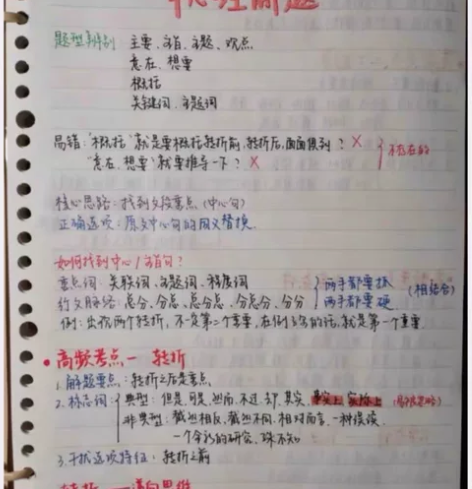 中心理解题
题型辨别 主要、旨、主题、观点
意在、想要
概括
关键词、主题词
易错:"概括"就是要概括转折前,转折后,面面俱到? × 不存在的
"意在、想要"就要推导一下? ×
核心思路:找到文段重点(中心句)
正确选项:原文中心句的同义替换.
如何找到中心/主旨句?
重点词:关联词、主题词、程度词 两手都要抓 (相结合)
行文脉络:总分、分总、总分总、分总分、分分 两手都要硬
例:出现两个转折,不一定第二个重要,在例子的话,就是第一个重要
高频考点一 转折
1.解题要点:转折之后是重点
2.标志词: 典型:但是、可是、然而、不过、却、其实、事实上、实际上 (易忽略)
非典型:截然相反、截然不同、相对而言、一种误读、
一个全新的研究、殊不知
3.干扰选项特征:转折之前